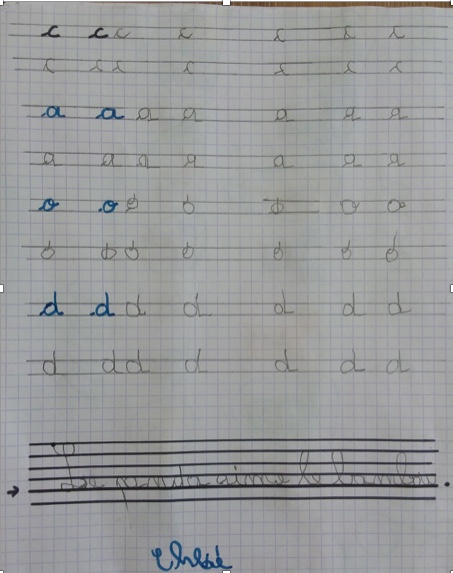 c c c c c c c
c c c c c c c
a a a a a a a
a a a a a a a
o o o o o o o
o o o o o o o
d d d d d d d
d d d d d d d
Le panda aime le bambou.
Chloé